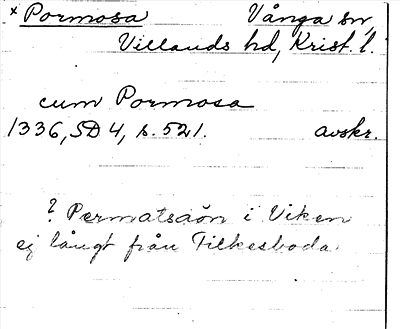 × Pormosa Vånga sn,
Villands hd, Krist. l.
cum Pormosa
1336, SD 4, s. 521. avskr.
? Permatsaön i Viken
ej långt från Tilkesboda.